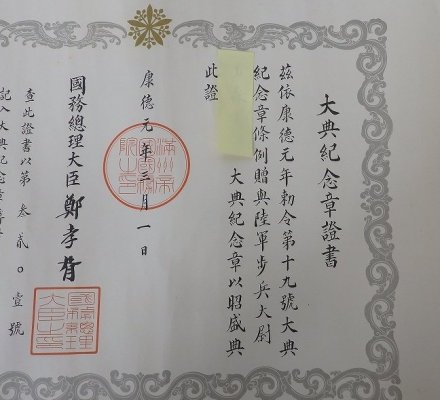 大典紀念章證書
茲依康德元年勅令第十九號大典
紀念章條例贈與陸軍步兵大尉
大典紀念章以昭盛典
此證
康德元年三月一日
國務總理大臣 鄭孝胥
查此證書以第叁貳〇壹號
記入大典紀念章